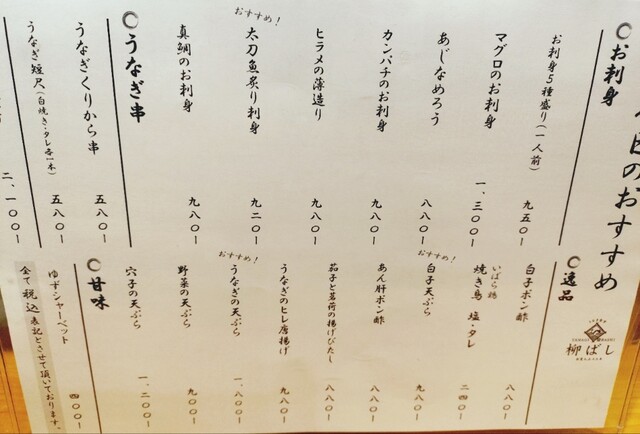 今日のおすすめ
お刺身
お刺身5種盛り(一人前) 九五〇ー
マグロのお刺身 一、三〇〇ー
あじなめろう 八八〇ー
カンパチのお刺身 九八〇ー
ヒラメの薄造り 九八〇ー
おすすめ!
太刀魚炙り刺身 九二〇ー
真鯛のお刺身 九八〇ー
うなぎ串
うなぎくりから串 五八〇ー
うなぎ短尺(白焼き・タレ各一本) 五八〇ー
二、一〇〇ー
逸品
白子ポン酢 八八〇ー
いばら鶏
焼き鳥 塩・タレ 二四〇ー
おすすめ!
白子天ぷら 九八〇ー
あん肝ポン酢 八八〇ー
茄子と茗荷の揚げびたし 八八〇ー
うなぎのヒレ唐揚げ 九八〇ー
おすすめ!
うなぎの天ぷら 一、八〇〇ー
野菜の天ぷら 九〇〇ー
穴子の天ぷら 一、二〇〇ー
甘味
ゆずシャーベット 四〇〇ー
全て税込表記とさせて頂いております。
柳ばし